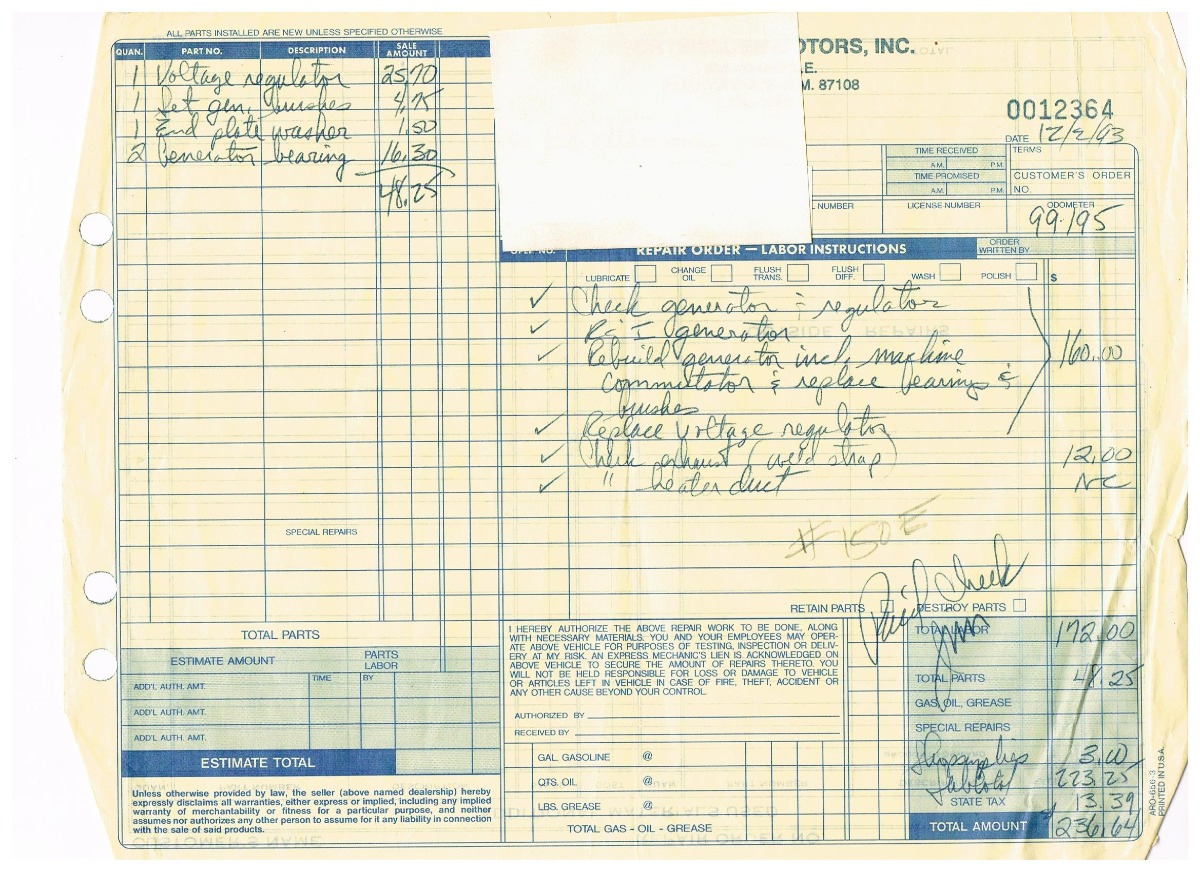 ALL PARTS INSTALLED ARE NEW UNLESS SPECIFIED OTHERWISE
QUAN. PART NO. DESCRIPTION SALE AMOUNT
1 Voltage regulator 25.70
1 Set gen. brushes 4.75
1 End plate washer 1.50
2 Generator bearing 16.30
48.25
SPECIAL REPAIRS
TOTAL PARTS
ESTIMATE AMOUNT PARTS LABOR
ADD'L AUTH. AMT. TIME BY
ADD'L AUTH. AMT.
ADD'L AUTH. AMT.
ESTIMATE TOTAL
Unless otherwise provided by law, the seller (above named dealership) hereby
expressly disclaims all warranties, either express or implied, including any implied
warranty of merchantability or fitness for a particular purpose, and neither
assumes nor authorizes any other person to assume for it any liability in connection
with the sale of said products.
OTORS, INC.
.E.
M. 87108
0012364
DATE 12/2/93
TIME RECEIVED TERMS
A.M. P.M.
TIME PROMISED CUSTOMER'S ORDER
A.M. P.M. NO.
L NUMBER LICENSE NUMBER ODOMETER
99195
OPER. NO. REPAIR ORDER — LABOR INSTRUCTIONS ORDER WRITTEN BY
LUBRICATE CHANGE OIL FLUSH TRANS. FLUSH DIFF. WASH POLISH $
✓ Check generator & regulator
✓ R & I generator
✓ Rebuild generator incl. machine 160.00
commutator & replace bearings &
brushes
✓ Replace voltage regulator
✓ Check exhaust (weld strap) 12.00
✓ " heater duct NC
#150E
Paid Check
RETAIN PARTS DESTROY PARTS
I HEREBY AUTHORIZE THE ABOVE REPAIR WORK TO BE DONE, ALONG
WITH NECESSARY MATERIALS. YOU AND YOUR EMPLOYEES MAY OPER-
ATE ABOVE VEHICLE FOR PURPOSES OF TESTING, INSPECTION OR DELIV-
ERY AT MY RISK. AN EXPRESS MECHANIC'S LIEN IS ACKNOWLEDGED ON
ABOVE VEHICLE TO SECURE THE AMOUNT OF REPAIRS THERETO. YOU
WILL NOT BE HELD RESPONSIBLE FOR LOSS OR DAMAGE TO VEHICLE
OR ARTICLES LEFT IN VEHICLE IN CASE OF FIRE, THEFT, ACCIDENT OR
ANY OTHER CAUSE BEYOND YOUR CONTROL.
AUTHORIZED BY
RECEIVED BY
GAL. GASOLINE @
QTS. OIL @
LBS. GREASE @
TOTAL GAS - OIL - GREASE
TOTAL LABOR 172.00
TOTAL PARTS 48.25
GAS, OIL, GREASE
SPECIAL REPAIRS
Shop supplies 3.00
Subtotal 223.25
STATE TAX 13.39
TOTAL AMOUNT $ 236.64
ARO-656-3
PRINTED IN U.S.A.